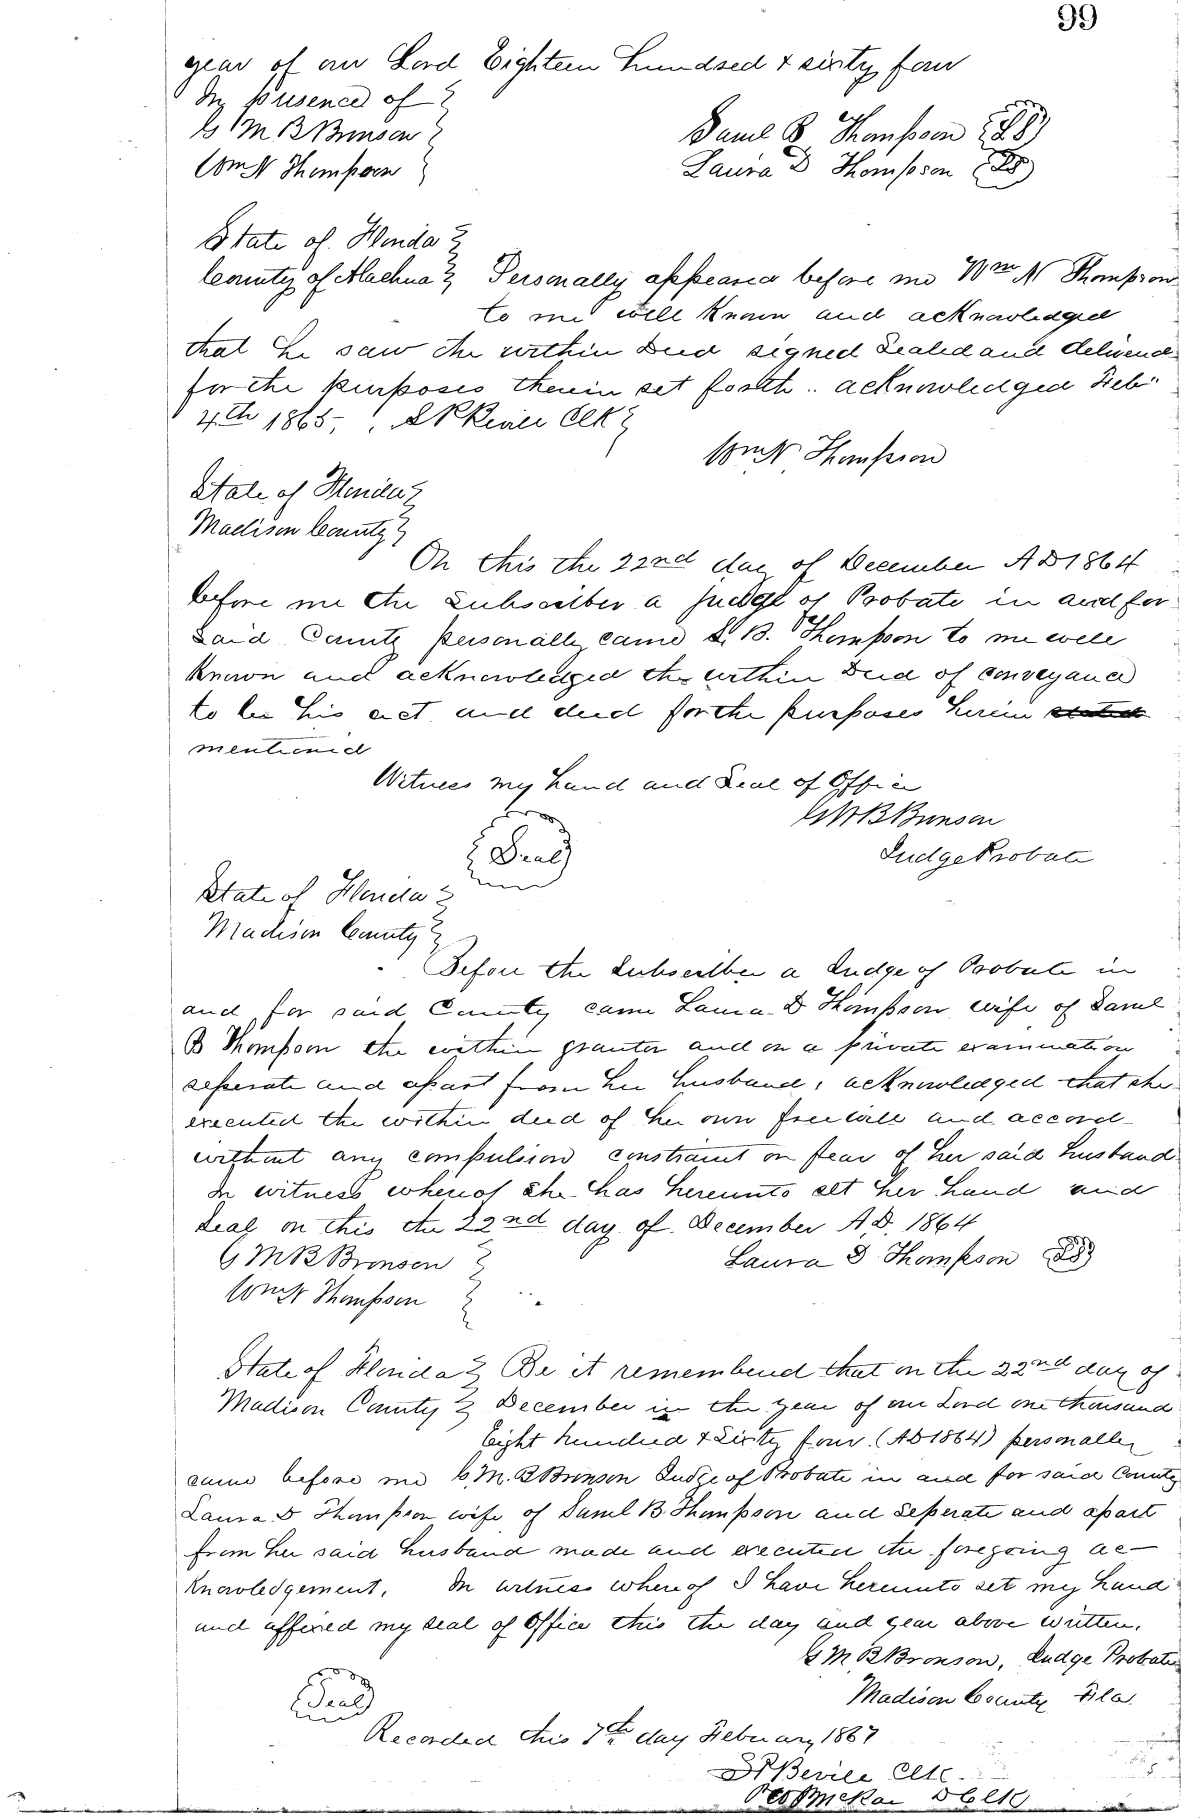 99
year of our Lord Eighteen hundred & sixty four
In presence of
G M B Brinson
Wm N Thompson
Saml B Thompson LS
Laura D Thompson LS
State of Florida
County of Alachua Personally appeared before me Wm N Thompson
to me well known and acknowledged
that he saw the within Deed signed Sealed and delivered
for the purposes therein set forth .. acknowledged Feb
4th 1865, Clk
Wm N Thompson
State of Florida
Madison County
On this the 22nd day of December AD 1864
before me the Subscriber a Judge of Probate in and for
Said County personally came S. B. Thompson to me well
known and acknowledged the within Deed of conveyance
to be his act and deed for the purposes herein stated
mentioned
Witness my hand and Seal of Office
GMB Brinson
Judge Probate
Seal
State of Florida
Madison County
Before the Subscriber a Judge of Probate in
and for said County came Laura D Thompson wife of Saml
B Thompson the within grantor and on a private examination
seperate and apart from her husband, acknowledged that she
executed the within deed of her own free will and accord
without any compulsion constraint or fear of her said husband
In witness whereof She has hereunto set her hand and
Seal on this the 22nd day of December A.D. 1864
G M B Brinson
Wm N Thompson
Laura D Thompson LS
State of Florida Be it remembered that on the 22nd day of
Madison County December in the year of our Lord one thousand
Eight hundred & Sixty four (AD 1864) personally
came before me G. M. B Brinson Judge of Probate in and for said County
Laura D Thompson wife of Saml B. Thompson and Seperate and apart
from her said husband made and executed the foregoing ac-
knowledgement. In witness whereof I have hereunto set my hand
and affixed my seal of Office this the day and year above written.
G M B Bronson, Judge Probate
Madison County Fla.
Seal
Recorded this 7th day February 1867
Bevill Clk.
D Clk